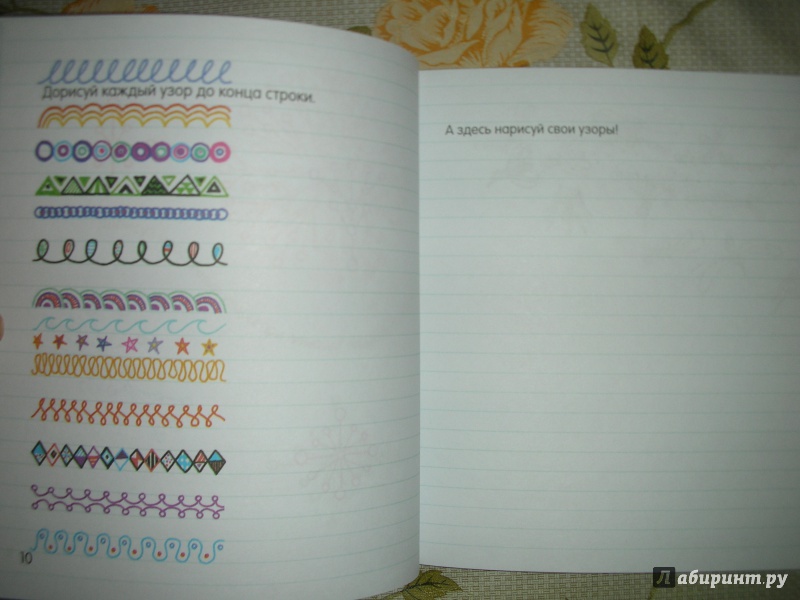 Дорисуй каждый узор до конца строки.
А здесь нарисуй свои узоры!
10
Лабиринт.ру